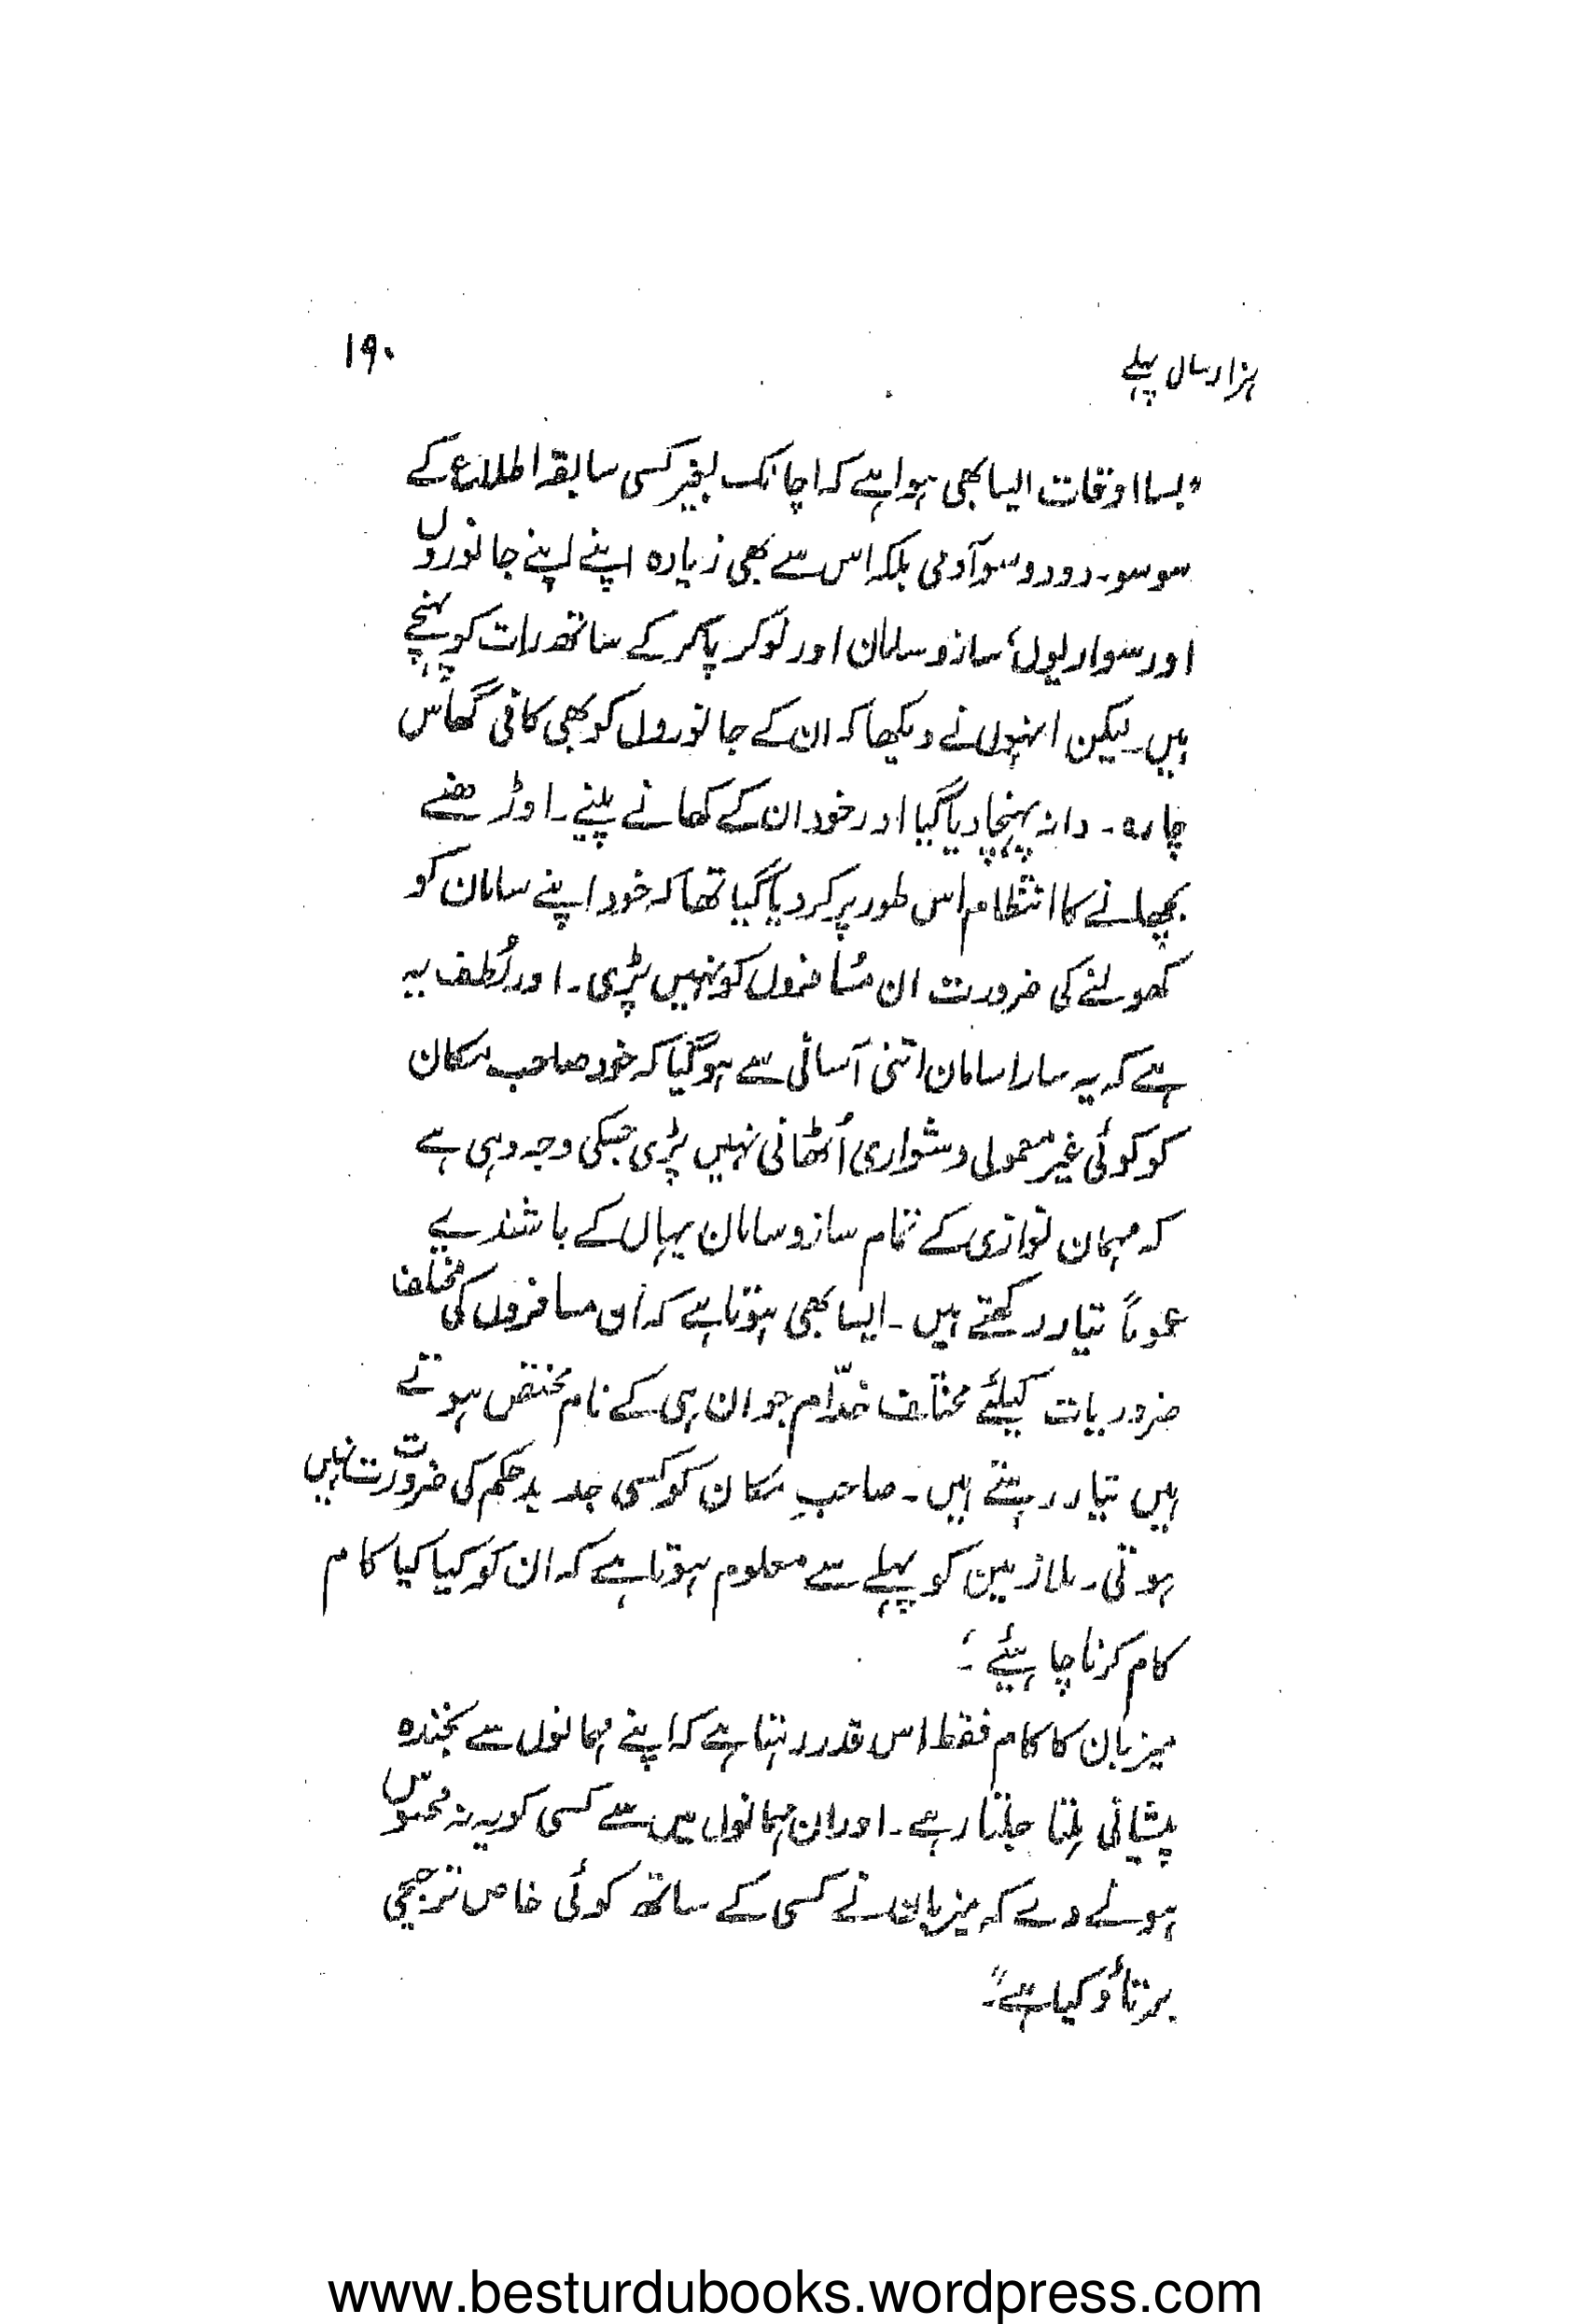 ہزار سال پہلے
۱۹۰
"بسا اوقات ایسا بھی ہوا ہے کہ اچانک بغیر کسی سابقہ اطلاع کے
سو سو۔ دو دو سو آدمی بلکہ اس سے بھی زیادہ اپنے اپنے جانوروں
اور سواریوں، سازو سامان اور نوکر چاکر کے ساتھ رات کو پہنچے
ہیں۔ لیکن انہوں نے دیکھا کہ ان کے جانوروں کو بھی کافی گھاس
چارہ۔ دانہ پہنچا دیا گیا اور خود ان کے کھانے پینے۔ اوڑھنے
بچھانے کا انتظام اس طور پر کر دیا گیا تھا کہ خود اپنے سامان کو
کھولنے کی ضرورت ان مُسافروں کو نہیں پڑی۔ اور لُطف یہ
ہے کہ یہ سارا سامان اتنی آسانی سے ہو گیا کہ خود صاحب مکان
کو کوئی غیر معمولی دشواری اُٹھانی نہیں پڑی جسکی وجہ وہی ہے
کہ مہمان نوازی کے تمام سازو سامان یہاں کے باشندے
عموماً تیار رکھتے ہیں۔ ایسا بھی ہوتا ہے کہ اُن مسافروں کی مختلف
ضروریات کیلئے مختلف خدّام جو ان ہی کے نام مختص ہوتے
ہیں تیار رہتے ہیں۔ صاحبِ مکان کو کسی جدید حکم کی ضرورت نہیں
ہوتی۔ ملازمین کو پہلے سے معلوم ہوتا ہے کہ ان کو کیا کیا کام
کام کرنا چاہیئے ؛
میزبان کا کام فقط اس قدر رہتا ہے کہ اپنے مہمانوں سے بخندہ
پیشانی مِلتا جلتا رہے۔ اور ان مہمانوں میں سے کسی کو یہ نہ محسوس
ہونے دے کہ میزبان نے کسی کے ساتھ کوئی خاص ترجیحی
برتاؤ کیا ہے"۔
www.besturdubooks.wordpress.com